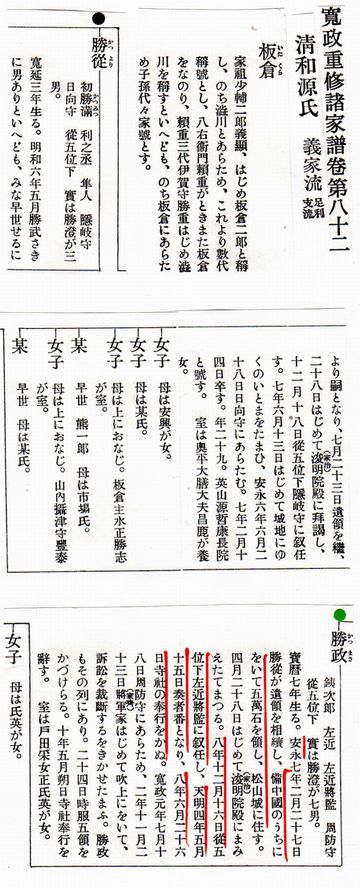 寬政重修諸家譜卷第八十二
清和源氏 義家流 足利支流
板倉
家祖少輔二郎義顯、はじめ板倉二郎と稱
し、のち澁川とあらため、これより數代
稱號とし、八右衞門賴重がときまた板倉
をなのり、賴重三代伊賀守勝重はじめ澁
川を稱すといへども、のち板倉にあらた
め子孫代々家號とす。
勝從
初勝滿 利之丞 隼人 隱岐守
日向守 從五位下 實は勝澄が三
男。
寬延三年生る。明和六年五月勝武さき
に男ありといへども、みな早世せるに
より嗣となり、七月二十三日遺領を繼、
二十八日はじめて浚明院殿(家治)に拜謁し、
十二月十八日從五位下隱岐守に叙任
す。七年六月十三日はじめて城地にゆ
くのいとまをたまひ、安永六年六月二
十八日日向守にあらたむ。七年二月十
四日卒す。年二十九。英山源哲康長院
と號す。 室は奧平大膳大夫昌鹿が養
女。
女子 母は安興が女。
女子 母は某氏。
女子 母は上におなじ。板倉主水正勝志
が室。
某 早世 熊一郎 母は市場氏。
女子 母は上におなじ。山內攝津守豐泰
が室。
某 早世 母は某氏。
勝政
銕次郎 左近 左近將監 周防守
從五位下 實は勝澄が七男。
寶曆七年生る。安永七年二月二十七日
勝從が遺領を相續し、備中國のうちに
をいて五萬石を領し、松山城に住す。
四月二十八日はじめて浚明院殿(家治)にまみ
えたてまつる。八年十二月十六日從五
位下左近將監に叙任し、天明四年五月
十五日奏者番となり、八年六月二十六
日寺社の奉行をかぬ。寬政元年七月十
八日周防守にあらため、二年十一月二
十三日將軍家(家齊)はじめて吹上にをいて、
訴訟を裁斷するをきかせたまふ。勝政
もその列にあり。二十四日時服五領を
かづけらる。十年五月朔日寺社奉行を
辭す。 室は戶田采女正氏英が女。
女子 母は氏英が女。